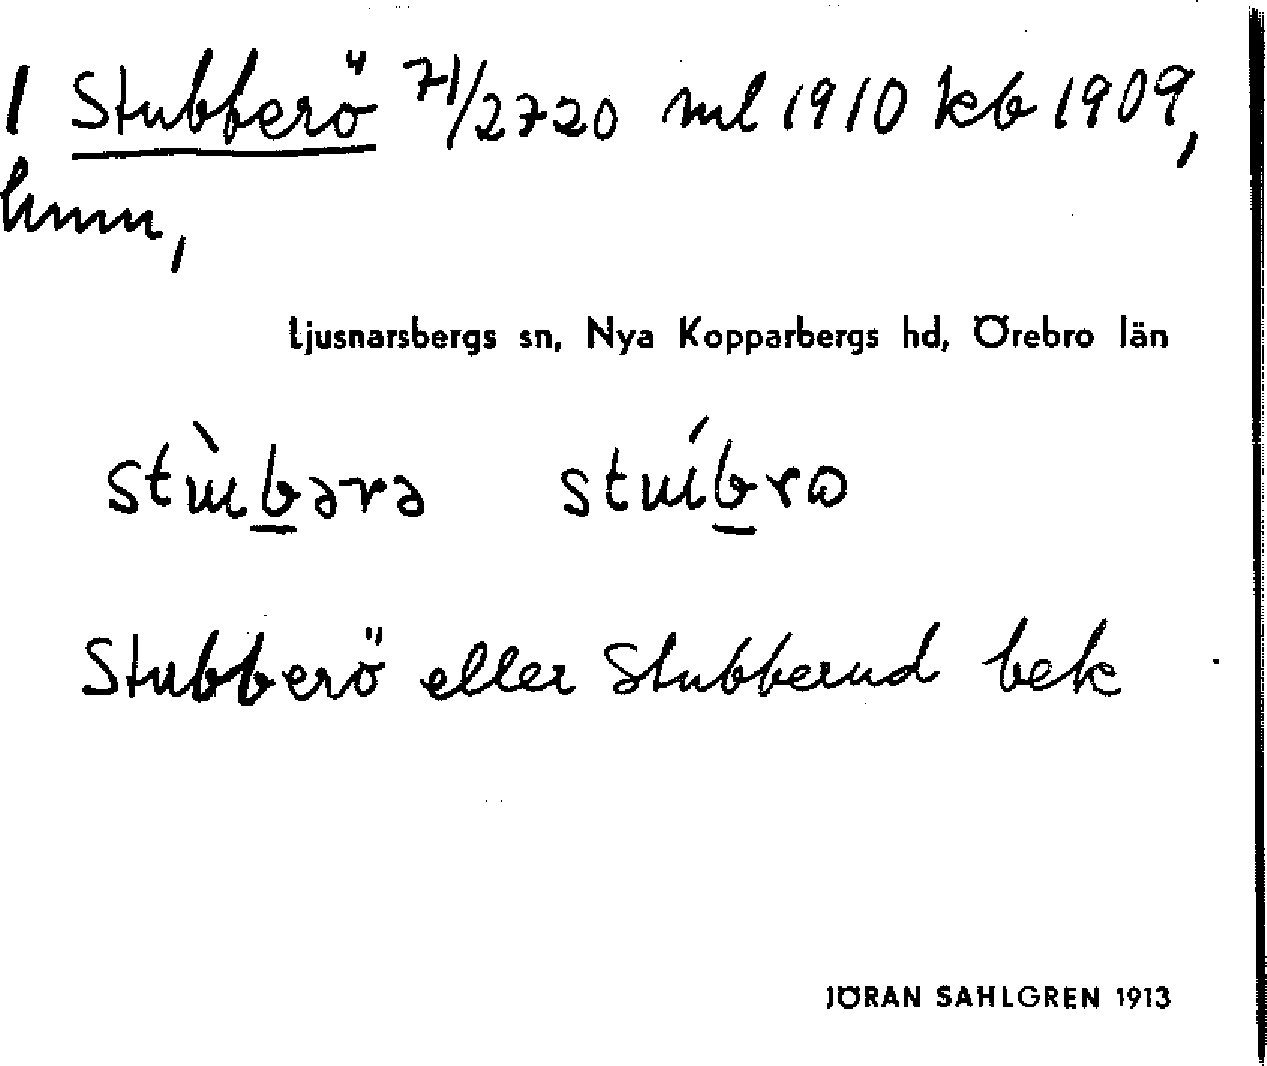 1 Stubberö 71/2720 ml 1910 kb 1909,
hmn,
Ljusnarsbergs sn, Nya Kopparbergs hd, Örebro län
stùbərə stúbrə
Stubberö eller Stubberud bek
JÖRAN SAHLGREN 1913